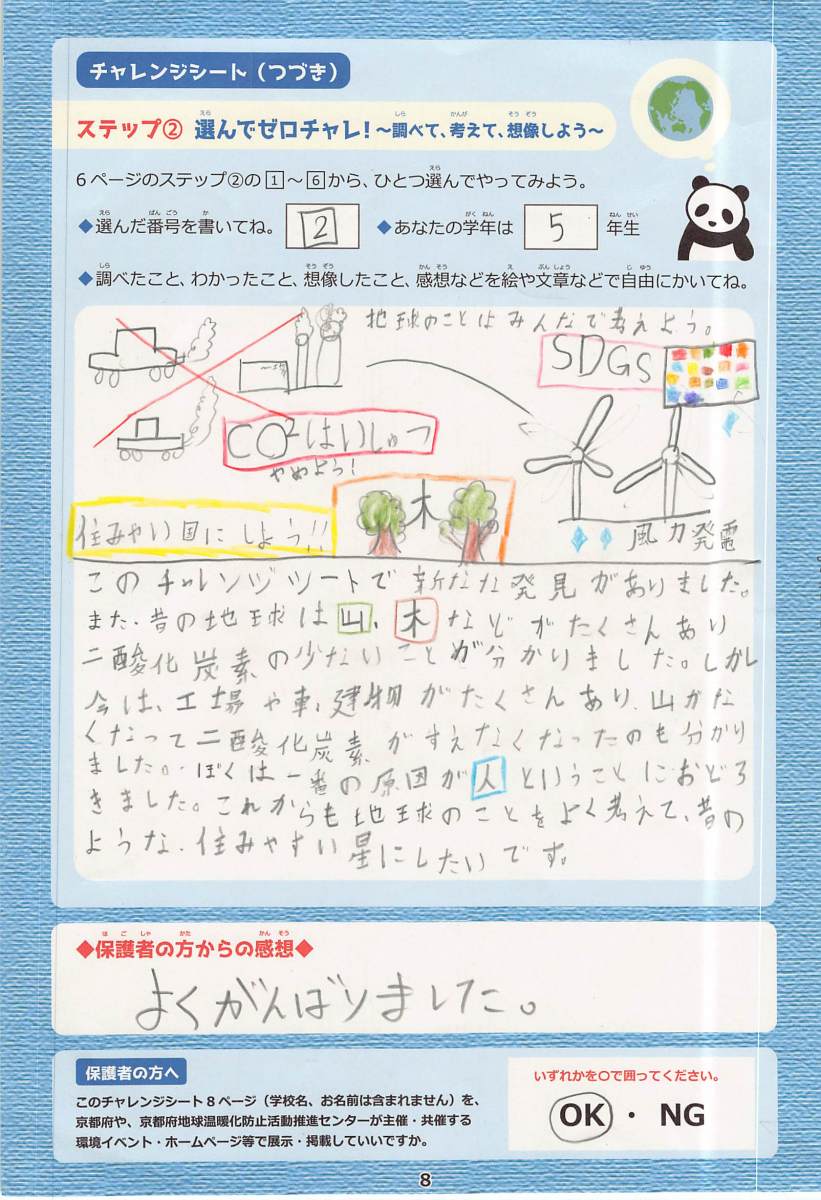 チャレンジシート（つづき）
ステップ② 選んでゼロチャレ！～調べて、考えて、想像しよう～
6ページのステップ②の1～6から、ひとつ選んでやってみよう。
◆選んだ番号を書いてね。 2 ◆あなたの学年は 5 年生
◆調べたこと、わかったこと、想像したこと、感想などを絵や文章などで自由にかいてね。
地球のことはみんなで考えよう。
SDGS
CO²はいしゅつ
やめよう！
木
住みやい国にしよう!!
風力発電
このチャレンジツートで新たな発見がありました。
また、昔の地球は山、木などがたくさんあり
二酸化炭素の少ないことが分かりました。しかし
今は、工場や車、建物がたくさんあり、山がな
くなって二酸化炭素がすえなくなったのも分かり
ました。ぼくは一番の原因が人ということにおどろ
きました。これからも地球のことをよく考えて、昔の
ような、住みやすい星にしたいです。
◆保護者の方からの感想◆
よくがんばりました。
保護者の方へ
このチャレンジシート8ページ（学校名、お名前は含まれません）を、
京都府や、京都府地球温暖化防止活動推進センターが主催・共催する
環境イベント・ホームページ等で展示・掲載していいですか。
いずれかを〇で囲ってください。
OK ・ NG
8